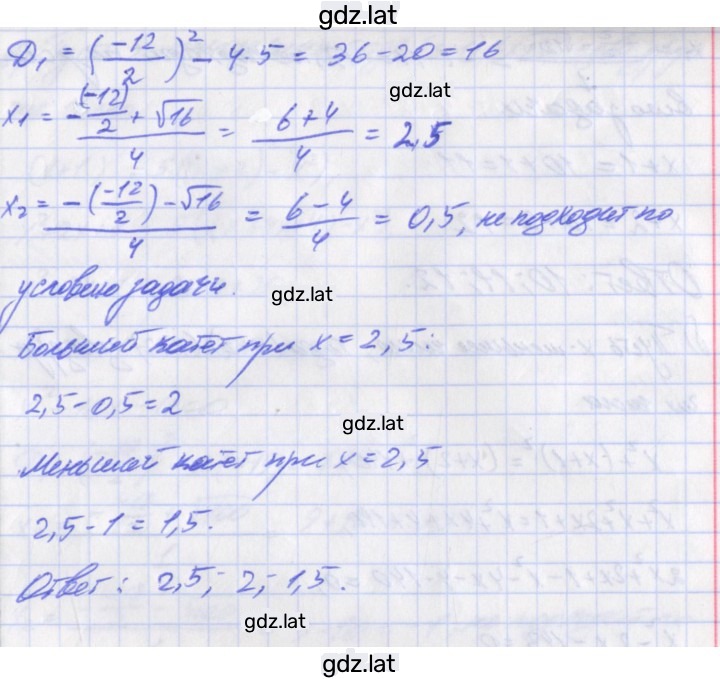 gdz.lat
D₁ = (-12/2)² - 4·5 = 36 - 20 = 16
gdz.lat
x₁ = (-(-12)/2 + √16)/4 = (6+4)/4 = 2,5
x₂ = (-(-12/2) - √16)/4 = (6-4)/4 = 0,5, не подходит по
условию задачи.
gdz.lat
Больший катет при x = 2,5:
2,5 - 0,5 = 2
gdz.lat
Меньший катет при x = 2,5
2,5 - 1 = 1,5.
Ответ: 2,5; 2; 1,5.
gdz.lat
gdz.lat